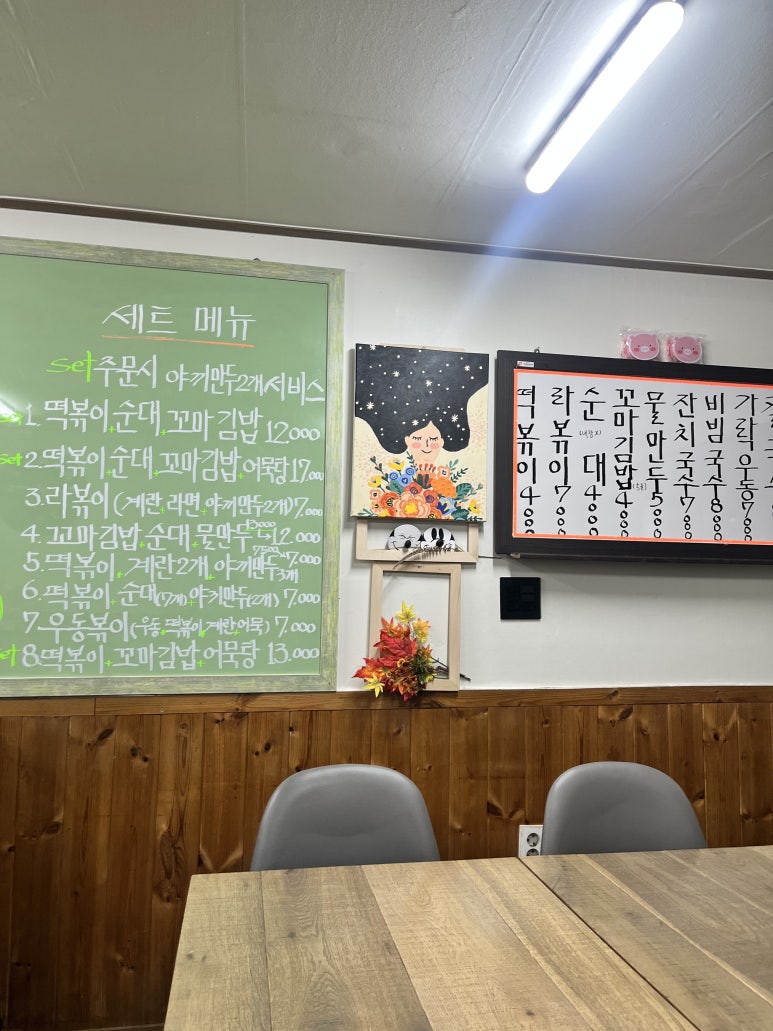 세트 메뉴
set주문시 야끼만두2개서비스
1. 떡볶이+순대+꼬마김밥 12.000
set 2. 떡볶이+순대+꼬마김밥+어묵탕 17.000
3. 라볶이 (계란+라면+야끼만두2개) 7.000
4. 꼬마김밥+순대+물만두 12.000
5. 떡볶이+계란2개+야끼만두3개 7.000
6. 떡볶이+순대(7개)+야끼만두(2개) 7.000
7. 우동볶이(우동+떡볶이+계란+어묵) 7.000
set 8. 떡볶이+꼬마김밥+어묵탕 13.000
떡볶이 4000
라볶이 7000
순대 4000
꼬마김밥 4000
물만두 5000
잔치국수 7000
비빔국수 8000
가락우동 7000